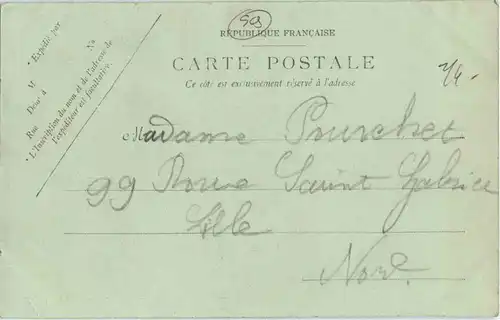 59
RÉPUBLIQUE FRANÇAISE
CARTE POSTALE
Ce côté est exclusivement réservé à l'adresse
* Expédié par
M
Demt à
Rue Nº
* L'Inscription du nom et de l'adresse de
l'expéditeur est facultative.
Madame Pourchet
99 Roue Saint Gabrice
Lille
Nord